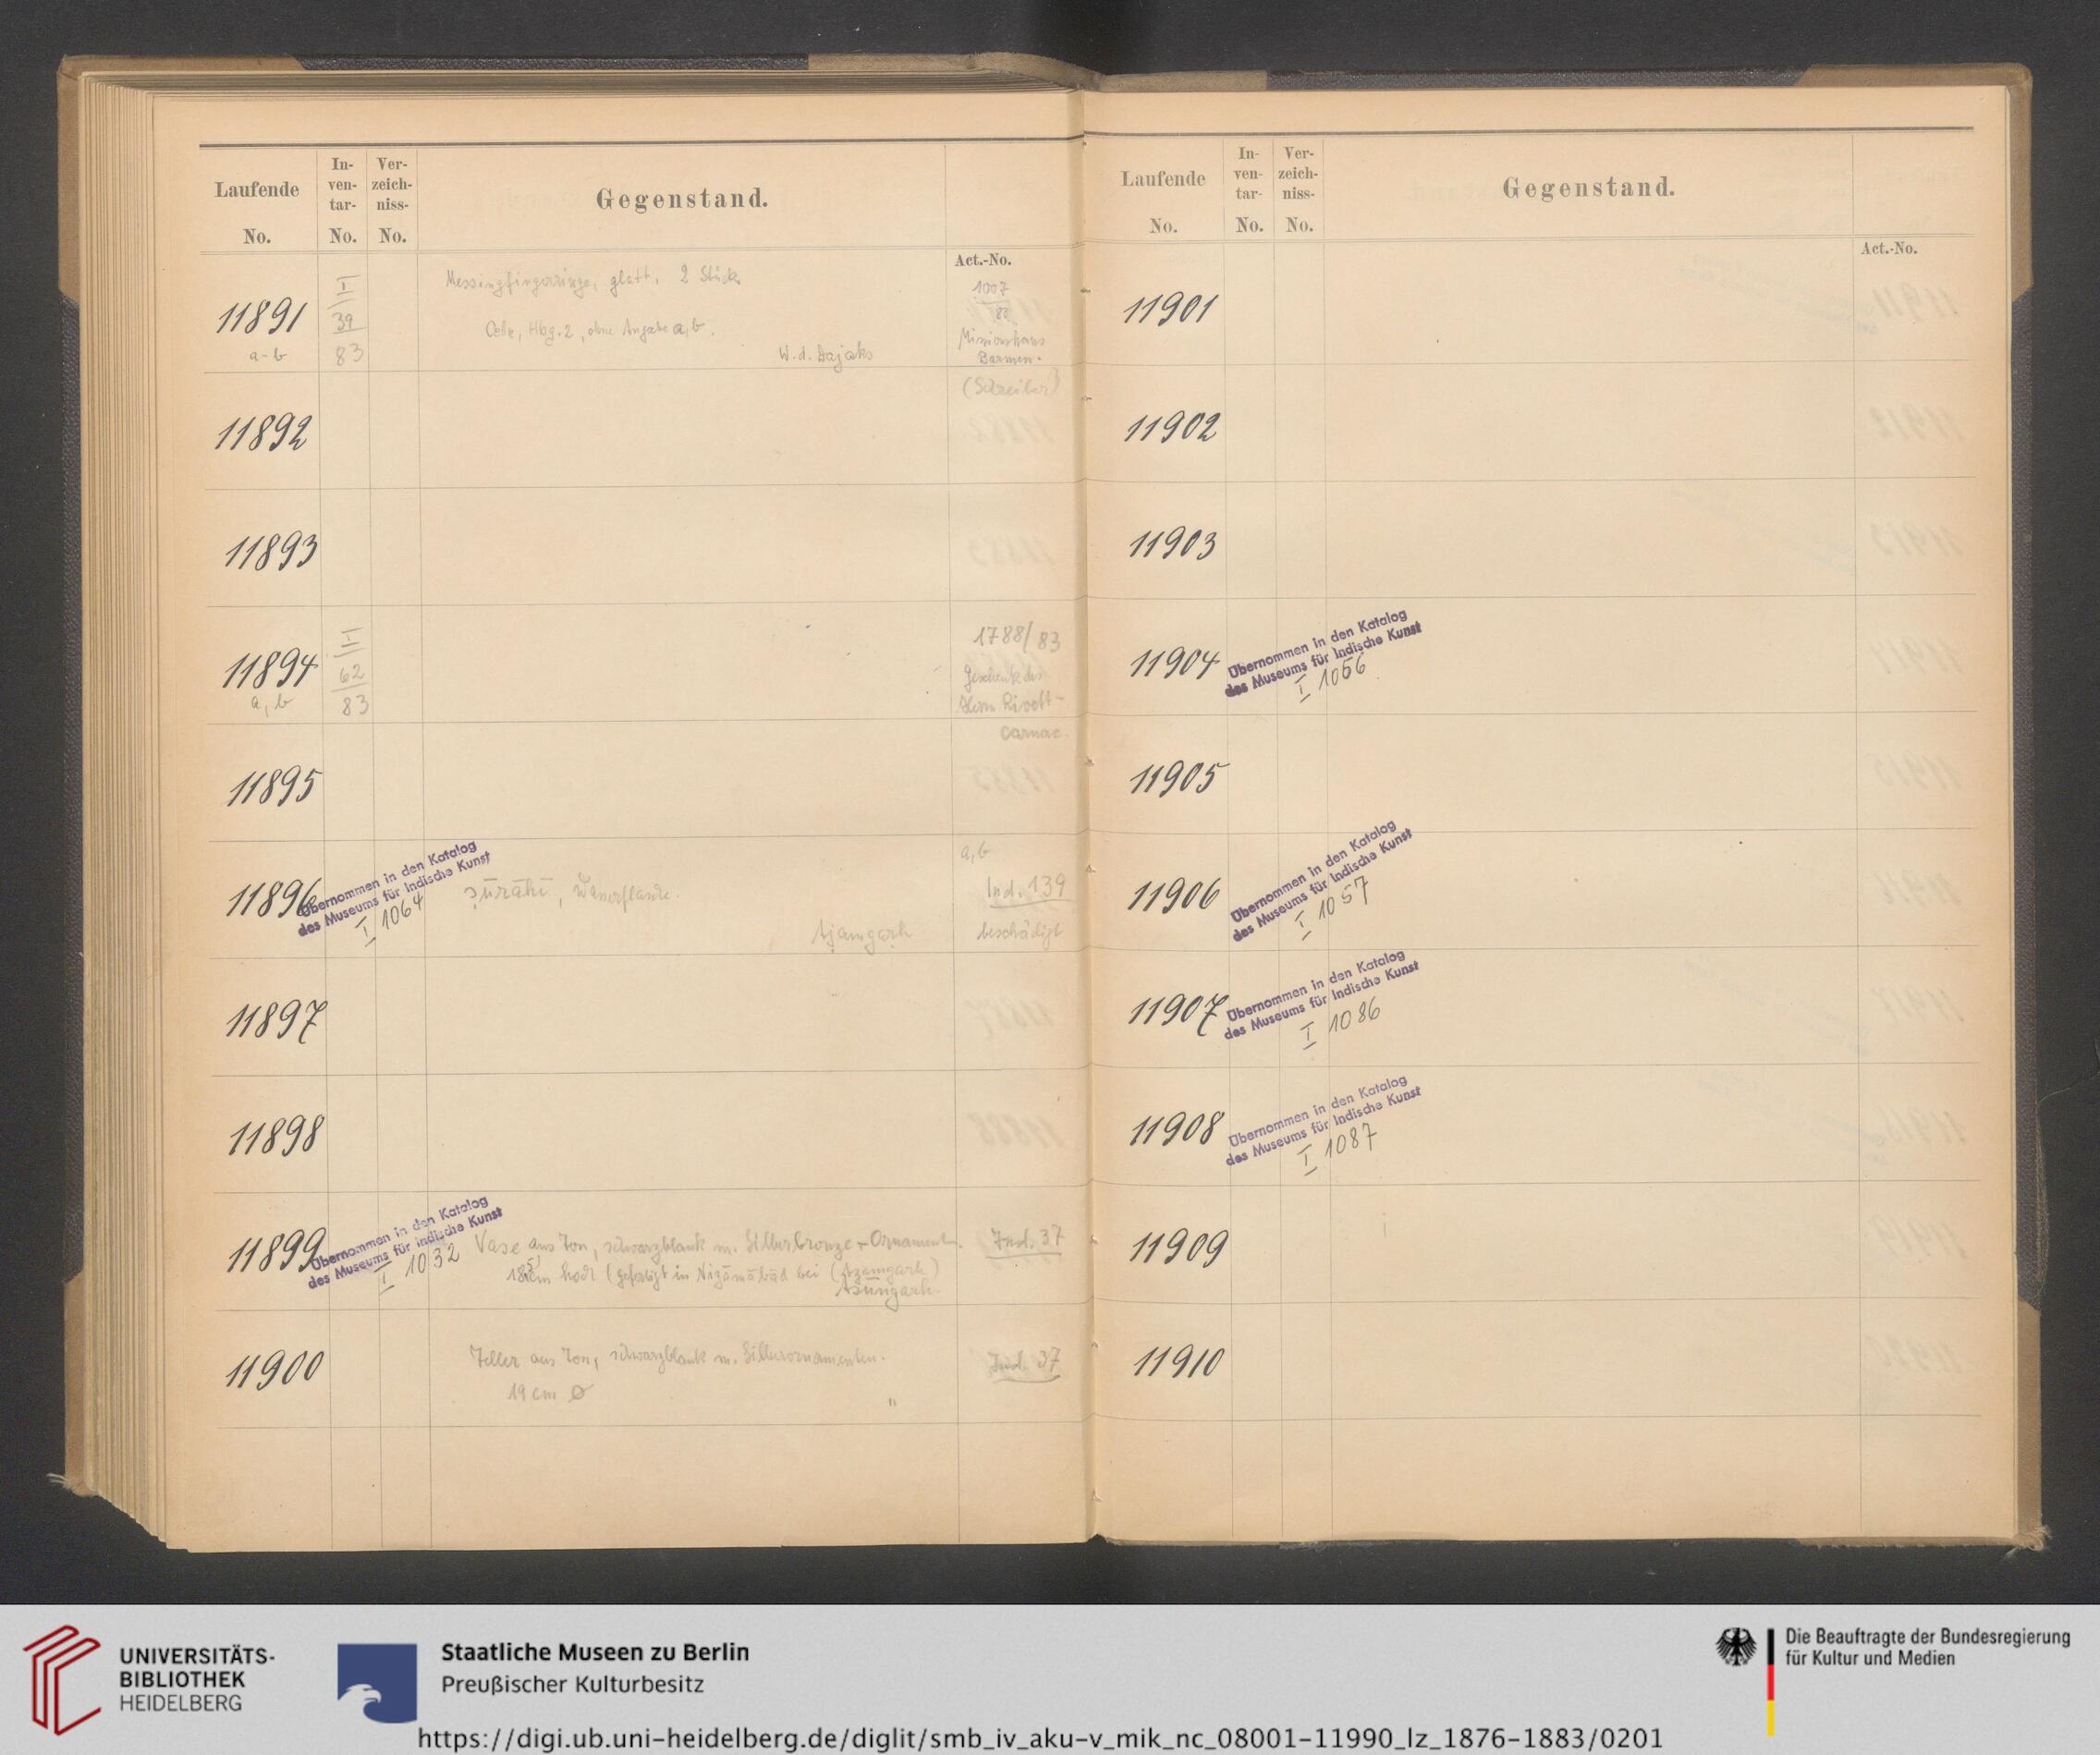 Laufende
No.
In-
ven-
tar-
No.
Ver-
zeich-
niss-
No.
Gegenstand.
Act.-No.
11891
a-b
I
39
83
Messingfingerringe, glatt, 2 Stück
ohne Angabe a, b.
W. d. Dajaks
1007
83
Missionshaus
Barmen.
(Schreiber)
11892
11893
11894
a, b
I
62
83
1788/83
Geschenk des
Herrn Rivett-
Carnac.
11895
11896
Übernommen in den Katalog
des Museums für Indische Kunst
I 1064
surāhī, Wasserflasche.
a, b
Ind. 139
beschädigt
11897
11898
11899
Übernommen in den Katalog
des Museums für Indische Kunst
I 1032
Vase aus Ton, schwarzblank m. Silberbronze-Ornament.
hoch (gefertigt in Nizāmābād bei (Azamgarh)
Ind. 37
11900
Teller aus Ton, schwarzblank m. Silberornamenten.
19 cm Ø
"
Ind. 37
Laufende
No.
In-
ven-
tar-
No.
Ver-
zeich-
niss-
No.
Gegenstand.
Act.-No.
11901
11902
11903
11904
Übernommen in den Katalog
des Museums für Indische Kunst
I 1056
11905
11906
Übernommen in den Katalog
des Museums für Indische Kunst
I 1057
11907
Übernommen in den Katalog
des Museums für Indische Kunst
I 1086
11908
Übernommen in den Katalog
des Museums für Indische Kunst
I 1087
11909
11910
UNIVERSITÄTS-
BIBLIOTHEK
HEIDELBERG
Staatliche Museen zu Berlin
Preußischer Kulturbesitz
Die Beauftragte der Bundesregierung
für Kultur und Medien
https://digi.ub.uni-heidelberg.de/diglit/smb_iv_aku-v_mik_nc_08001-11990_lz_1876-1883/0201